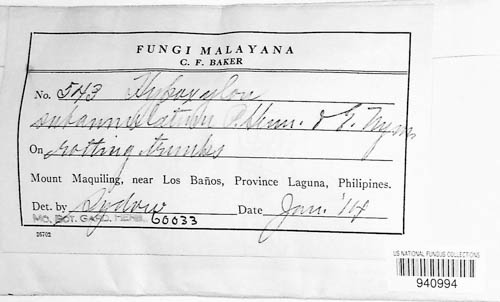 FUNGI MALAYANA
C. F. BAKER
No. 543 Hypoxylon
subannulatum P. Henn. & E. Nym
On rotting trunks
Mount Maquiling, near Los Baños, Province Laguna, Philipines.
Det. by Sydow Date Jan. '14
MO. BOT. GARD. HERB. 60033
26702
US NATIONAL FUNGUS COLLECTIONS
940994